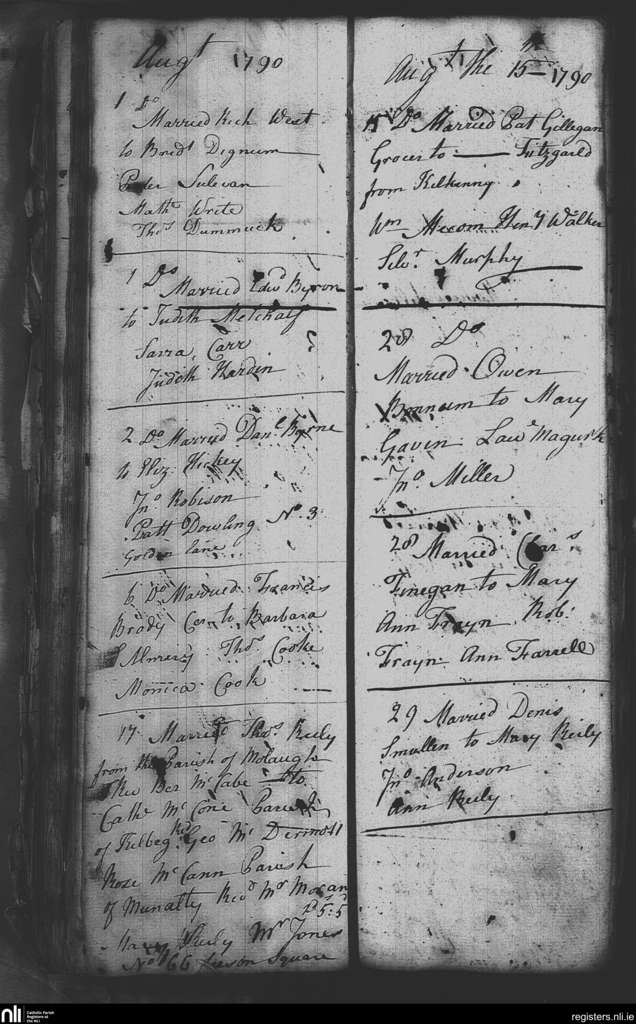 Augt 1790
1 Do
Married Rich West
to Bridt Dignum
Peter Sulevan
Mathw Write
Thos Dummuck
1 Do
Married Edwd Byron
to Judith Metchalf
Sarra Carr
Judith Hardin
2 Do Married Danl Byrne
to Eliz Hickey
Jno Robison
Patt Dowling No 3
Golden lane
6 Do Married Francis
Brody to Barbara
Almery Thos Cooke
Monica Cook
17 Married Thos Reily
from the Parish of
Revd Ber McCabe to
Cathe McCone Parish
of Kilbeg Geo McDermott
Rose McCann Parish
of Munalty Revd Mr Moran
5:5
Mary Reily Mr Jones
No 66 Square
Augt the 15th 1790
15 Do Married Pat Gillegan
Grocer to — Fitzgarld
from Kilkenny
Wm Heny Walker
Silvr Murphy
28 Do
Married Owen
to Mary
Gaven Lawe Magurk
Jno Miller
28 Married Chars
Finegan to Mary
Ann Frayn Robt
Frayn Ann Farrell
29 Married Denis
Smullen to Mary Reily
Jno Anderson
Ann Reily
nli
Catholic Parish
Registers at
the NLI
registers.nli.ie